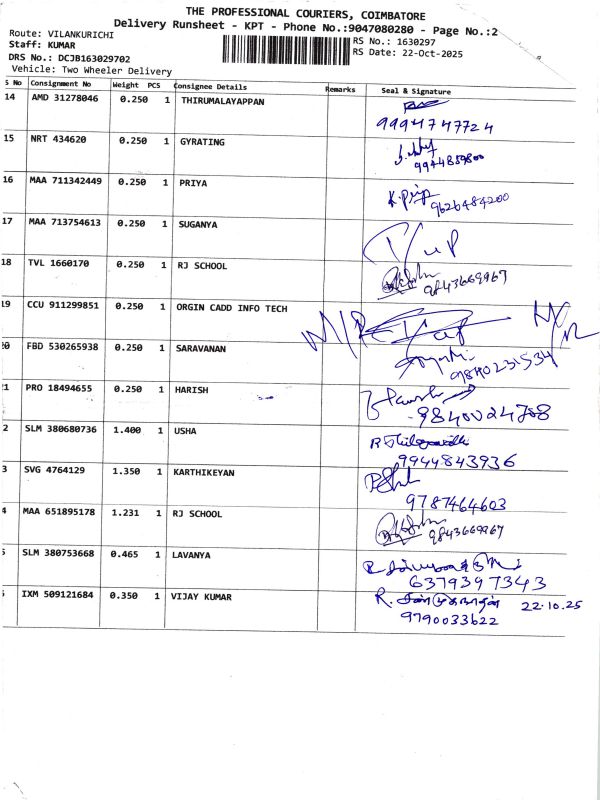 THE PROFESSIONAL COURIERS, COIMBATORE
Delivery Runsheet - KPT - Phone No.:9047080280 - Page No.:2
Route: VILANKURICHI
Staff: KUMAR
RS No.: 1630297
DRS No.: DCJB163029702
RS Date: 22-Oct-2025
Vehicle: Two Wheeler Delivery
S No Consignment No Weight PCS Consignee Details Remarks Seal & Signature
14 AMD 31278046 0.250 1 THIRUMALAYAPPAN
9994747724
15 NRT 434620 0.250 1 GYRATING
9944859800
16 MAA 711342449 0.250 1 PRIYA K. Priya 9626484200
17 MAA 713754613 0.250 1 SUGANYA
18 TVL 1660170 0.250 1 RJ SCHOOL 9843669967
19 CCU 911299851 0.250 1 ORGIN CADD INFO TECH
20 FBD 530265938 0.250 1 SARAVANAN
9840231534
21 PRO 18494655 0.250 1 HARISH
9840024788
2 SLM 380680736 1.400 1 USHA
9944843936
3 SVG 4764129 1.350 1 KARTHIKEYAN
9787464603
4 MAA 651895178 1.231 1 RJ SCHOOL 9843669967
5 SLM 380753668 0.465 1 LAVANYA
6379397343
IXM 509121684 0.350 1 VIJAY KUMAR R. சண்முகநாதன் 22.10.25
9790033622